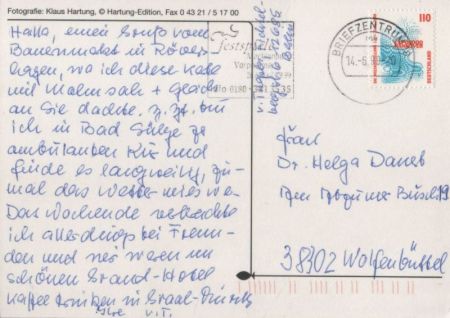 Fotografie: Klaus Hartung, © Hartung-Edition, Fax 0 43 21 / 5 17 00
Hallo, einen Gruß vom
Bauernmarkt in Rövers-
hagen, wo ich diese Karte
mit
an Sie dachte. z. Zt. bin
ich in Bad Sülze zu
ambulanten Kur und
finde es langweilig, zu-
mal das Wetter mies
Das Wochende verbrachte
ich allerdings bei Freun-
den und wir waren im
schönen Grand-Hotel
Kaffee trinken in Graal-Müritz
Ihre v.T.
Festspi
0180-
Berlin
BRIEFZENTRUM
14.-6.
110
DEUTSCHLAND
Frau
Dr. Helga Daneb
38302 Wolfenbüttel